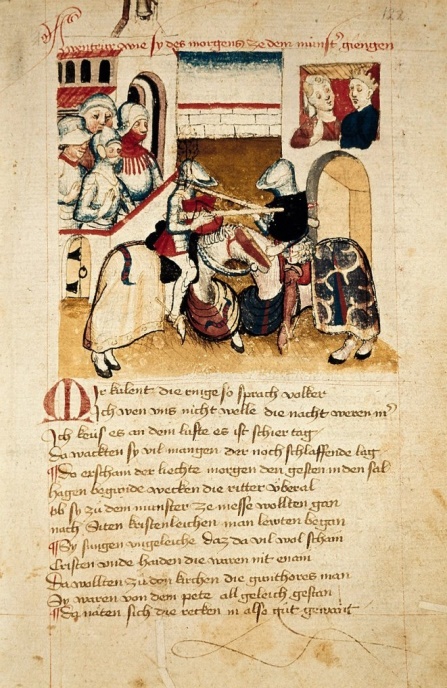 122
Awenteyr wie sy des morgens ze dem munst' giengen
Mir kulent die ringe so sprach volker
Ich wen uns nicht welle die nacht weren m'
Ich keüs es an dem lufte es ist schier tag
Da wackten sy vil mangen der noch schlaffende lag
Do erscham der liechte morgen den gesten in den sal
hagen begunde wecken die ritter vberal
ob sy zu dem munster ze messe wollten gan
nach Siten kristenleichen man lewten began
Sy sungen vngeleiche daz da vil wol schain
Cristen vnde haiden die waren nit enain
Da wollten zu der kirchen die gunthores man
Sy waren von dem pete all geleich gestan
Da naten sich die recken in also gůt gewant